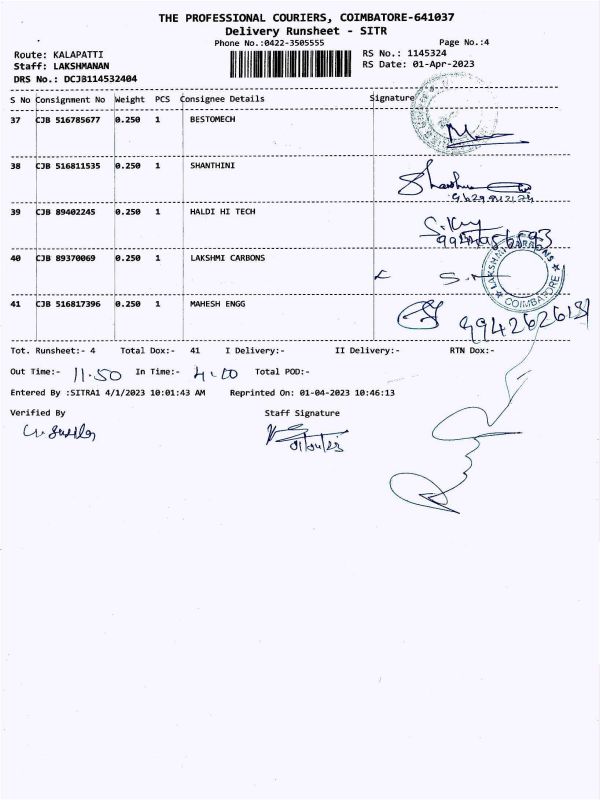 THE PROFESSIONAL COURIERS, COIMBATORE-641037
Delivery Runsheet - SITR
Phone No.:0422-3505555 Page No.:4
Route: KALAPATTI RS No.: 1145324
Staff: LAKSHMANAN RS Date: 01-Apr-2023
DRS No.: DCJB114532404
S No Consignment No Weight PCS Consignee Details Signature
37 CJB 516785677 0.250 1 BESTOMECH
38 CJB 516811535 0.250 1 SHANTHINI
39 CJB 89402245 0.250 1 HALDI HI TECH
40 CJB 89370069 0.250 1 LAKSHMI CARBONS
LAKSHMI CARBONS
COIMBATORE
41 CJB 516817396 0.250 1 MAHESH ENGG
Tot. Runsheet:- 4 Total Dox:- 41 I Delivery:- II Delivery:- RTN Dox:-
Out Time:- 11.50 In Time:- 4.00 Total POD:-
Entered By :SITRA1 4/1/2023 10:01:43 AM Reprinted On: 01-04-2023 10:46:13
Verified By Staff Signature
01/04/23